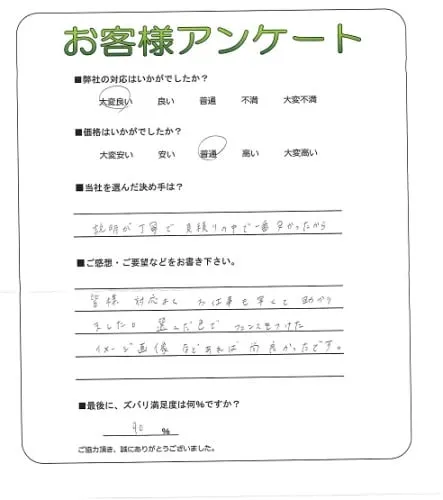 お客様アンケート
■弊社の対応はいかがでしたか?
大変良い 良い 普通 不満 大変不満
■価格はいかがでしたか?
大変安い 安い 普通 高い 大変高い
■当社を選んだ決め手は?
説明が丁寧で 見積りの中で一番 安かったから
■ご感想・ご要望などをお書き下さい。
皆様 対応よし お仕事も早くて 助かり
ました。 選んだ色で フェンスをつけた
イメージ画像 などあれば 尚良かったです。
■最後に、ズバリ満足度は何%ですか?
90 %
ご協力頂き、誠にありがとうございました。